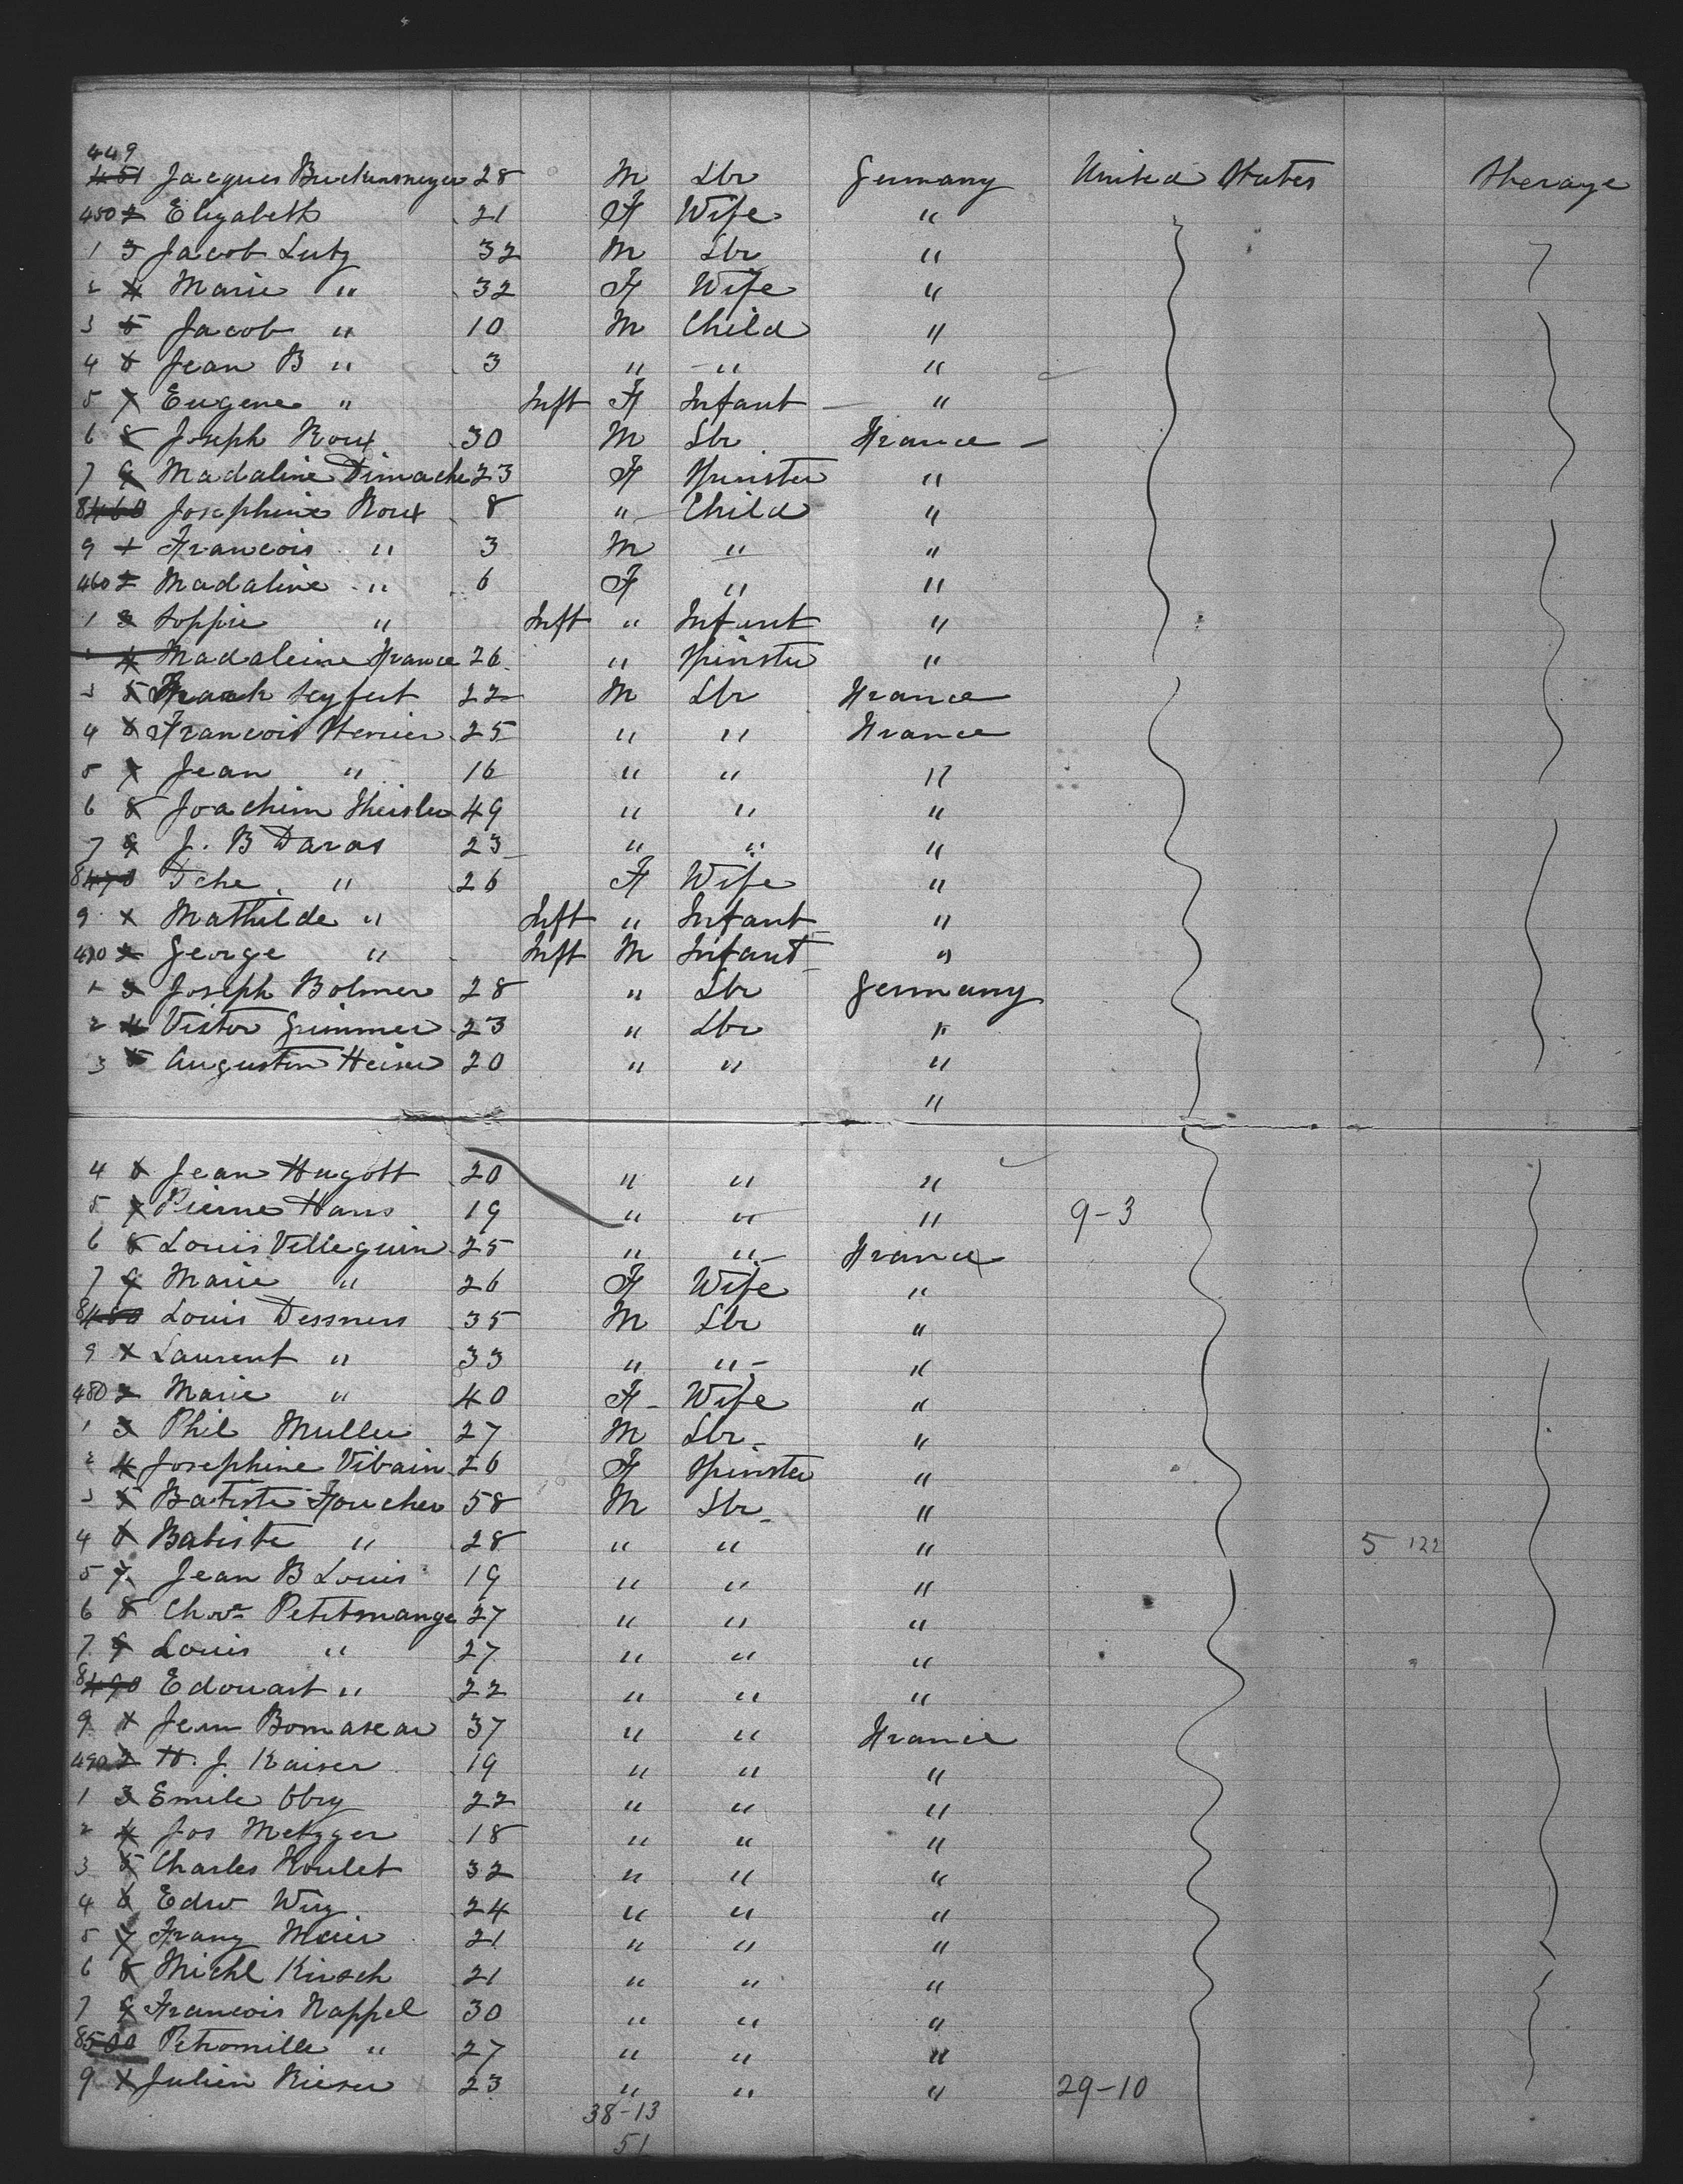 449
451 Jacques Buckensmeyer 28 M Lbr Germany United States Steerage
450 2 Elizabeth 21 F Wife "
1 3 Jacob Lutz 32 M Lbr "
2 4 Marie " 32 F Wife "
3 5 Jacob " 10 M Child "
4 6 Jean B " 3 " " "
5 7 Eugene " Inft F Infant "
6 8 Joseph Roux 30 M Lbr France
7 9 Madaline Dimache 23 F Spinster "
8 460 Josephine Roux 8 " Child "
9 1 Francois " 3 M " "
460 2 Madaline " 6 F " "
1 3 Soppie " Inft " Infant "
2 4 Madaleine France 26 " Spinster "
3 5 Frank Seyfert 22 M Lbr France
4 6 Francois Sterrier 25 " " France
5 7 Jean " 16 " " "
6 8 Joachim Theisler 49 " " "
7 9 J. B Daras 23 " " "
8 470 " 26 F Wife "
9 1 Mathilde " Inft " Infant "
470 2 George " Inft M Infant "
1 3 Joseph Bolmer 28 " Lbr Germany
2 4 Victor Grimmer 23 " Lbr "
3 5 Augustin Heiser 20 " " "
"
4 6 Jean Hugott 20 " " "
5 7 Pierre Hans 19 " " " 9-3
6 8 Louis Velleguin 25 " " France
7 9 Marie " 26 F Wife "
8 480 Louis Dessners 35 M Lbr "
9 1 Laurent " 33 " " "
480 2 Marie " 40 F Wife "
1 3 Phil Muller 27 M Lbr "
2 4 Josephine Vibain 26 F Spinster "
3 5 Batiste Foucher 58 M Lbr "
4 6 Batiste " 28 " " " 5 122
5 7 Jean B Louis 19 " " "
6 8 Petitmange 27 " " "
7 9 Louis " 27 " " "
8 490 Edouart " 22 " " "
9 1 Jean Bomasear 37 " " France
490 2 H. J. Kaiser 19 " " "
1 3 Emile Obry 22 " " "
2 4 Jos Metzger 18 " " "
3 5 Charles Houlet 32 " " "
4 6 Edw Wuy 24 " " "
5 7 Franz Meier 21 " " "
6 8 Michl Kirsch 21 " " "
7 9 Francois Nappel 30 " " "
8 500 Petronille " 27 " " "
9 1 Julien Rieser 23 " " " 29-10
38-13
51